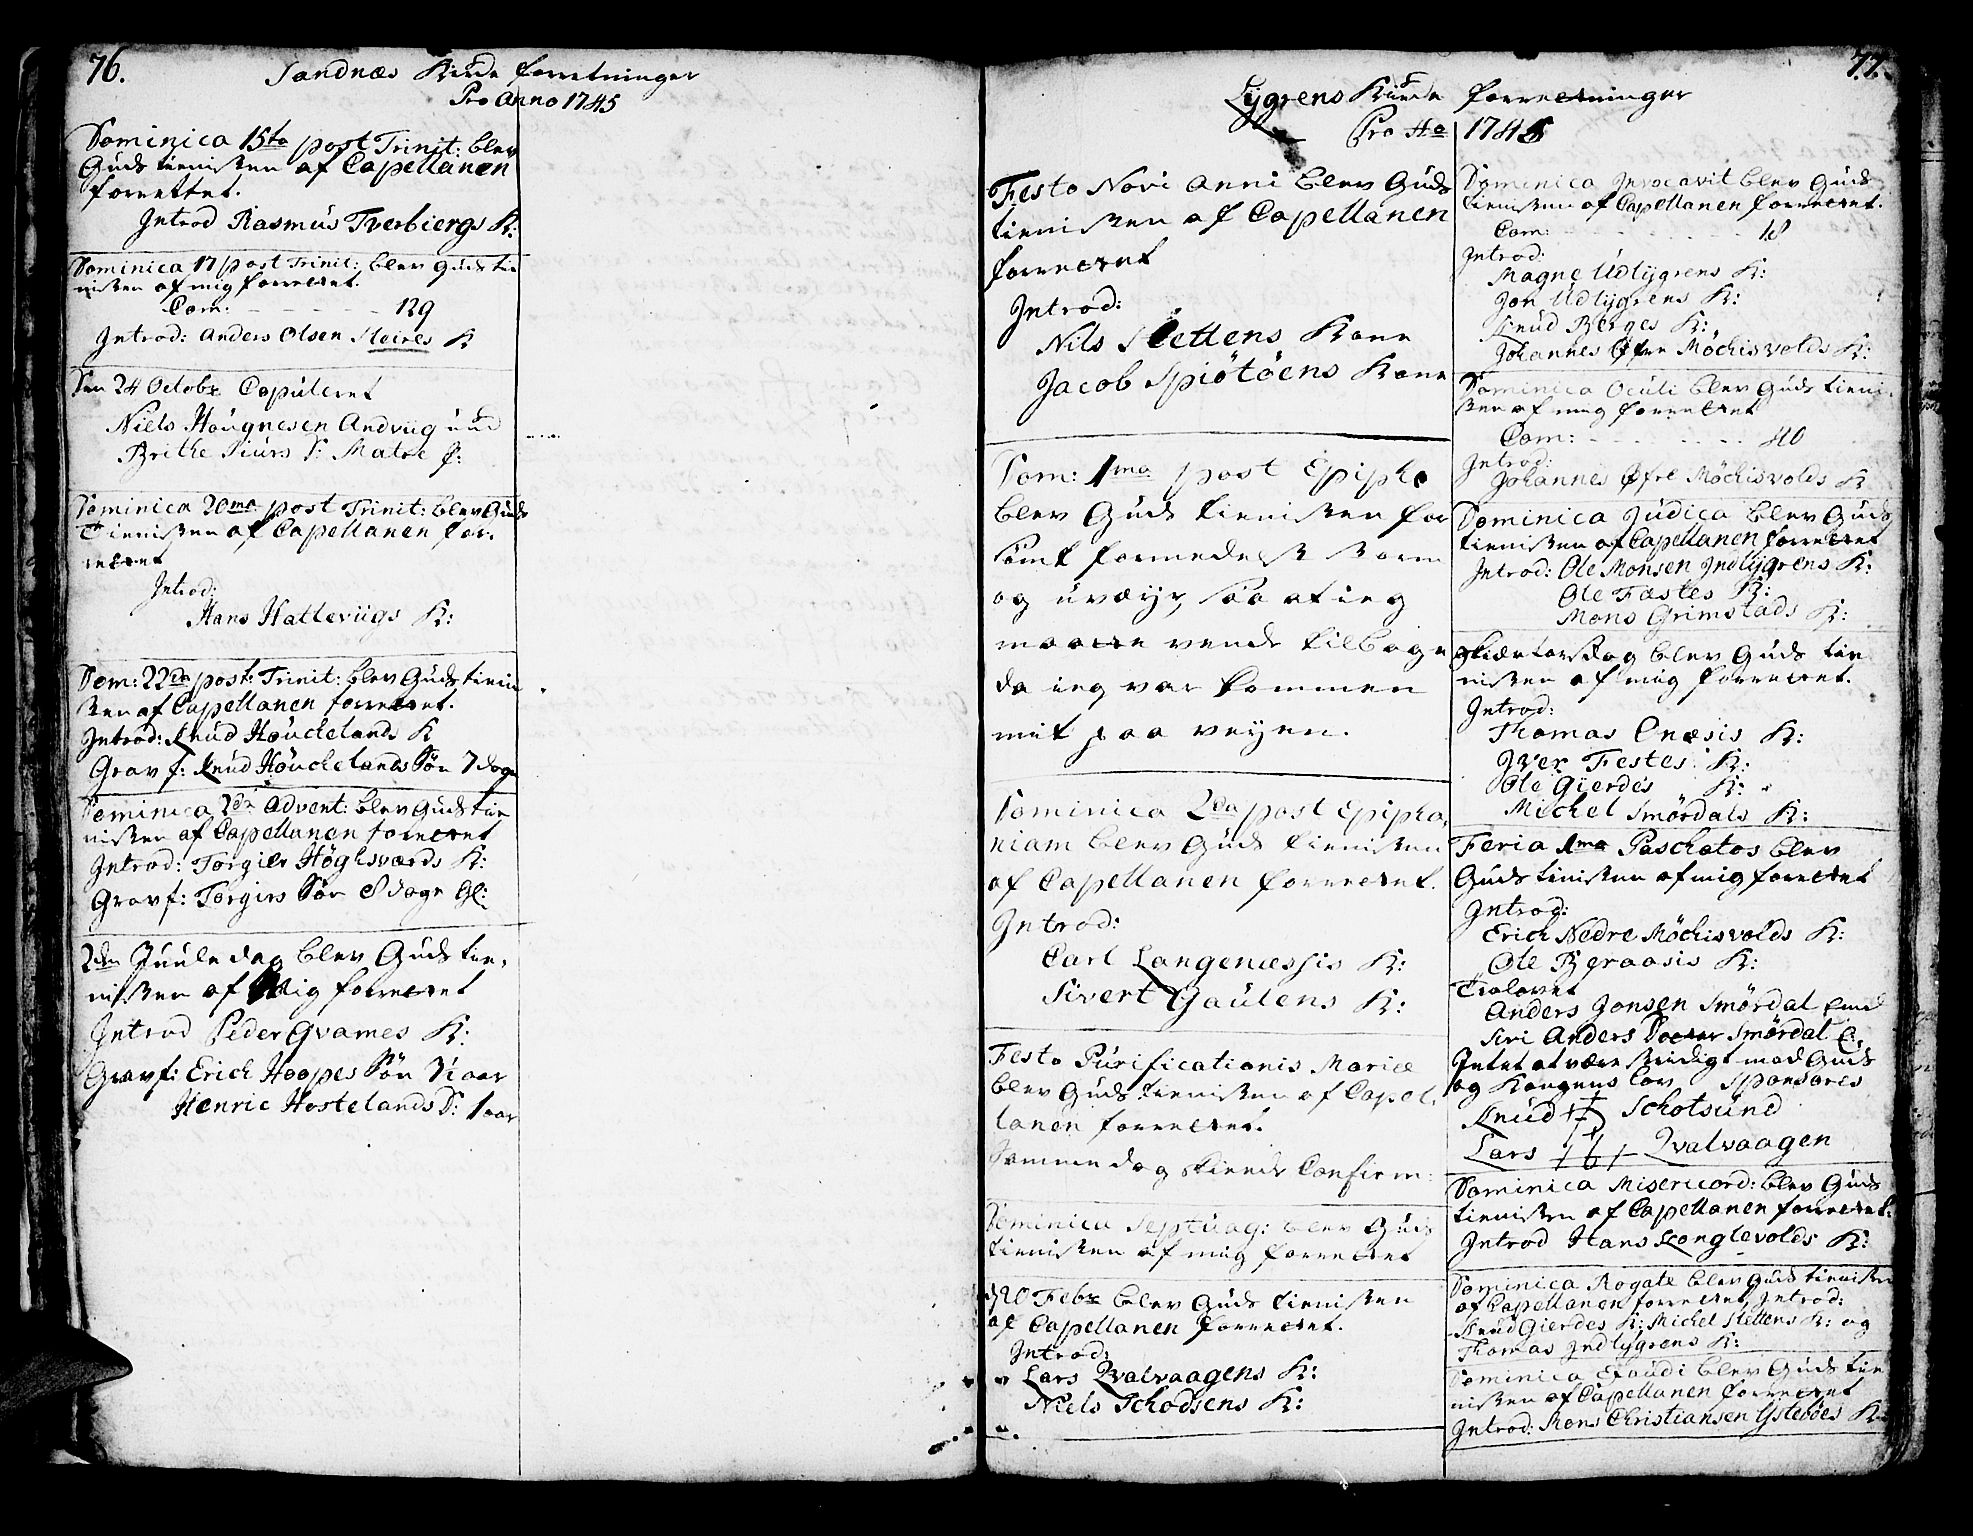 76.
Sandnæs Kirke forretninger
Pro Anno 1745
Dominica 15to post Trinit: blev
Guds tienisten af Capellanen
forrettet.
Introd Rasmus Tverbiergs K:
Dominica 17 post Trinit: blev Guds tie
nisten af mig forrettet.
Com: - - - - - - 129
Introd: Anders Olsen Steires K
Den 24 Octobr Copuleret
Niels Haugnesen Andviig und
Brithe Siurs D: Matre p:
Dominica 20ma post Trinit: blev Guds
Tienisten af Capellanen for-
rettet
Introd:
Hans Hatleviigs K:
Dom: 22da post: Trinit: blev Guds tieni
sten af Capellanen forrettet.
Introd: Knud Houchelands K
Gravf: Knud Houchelands Søn 7 dage
Dominica 2da Advent: blev Guds tie
nisten af Capellanen forrettet
Introd: Torgier Høghsværds K:
Gravf: Torgiers Søn 8 dage Gl:
2den Juule dag blev Guds tie-
nisten af Mig forrettet
Introd Peder Qvames K:
Gravf: Erich Hoopes Søn 3½ aar
Henric Hostelands D: 1 aar
77.
Lygrens Kirke forretninger
Pro Ao 1745
Festo Novi Anni blev Guds
tienisten af Capellanen
forrettet
Introd:
Nils Slettens Kone
Jacob Spiøtøens Kone
Dom: 1ma post Epiph:
blev Guds tienisten for
sømt formedelst storm
og uveyr, saa at ieg
maatte vende tilbage
da ieg var kommen
mit paa veyen.
Dominica 2da post Epipha,
niam blev Guds tienisten
af Capellanen forrettet.
Introd:
Carl Langenæssis K:
Sivert Gaulens K:
Festo Purificationis Mariæ
blev Guds tienisten af Capel,
lanen forrettet.
Samme dag skeede Confirm:
Dominica Septuag: blev Guds
tienisten af mig forrettet
d 20 Febr blev Guds tienisten
af Capellanen forrettet.
Introd:
Lars Qvalvaagens K:
Niels Schodsens K:
Dominica Invocavit blev Guds
tienisten af Capellanen forrettet.
Com: - - - - - - 18
Introd:
Magne Udlygrens K:
Jon Udlygrens K:
Knud Berges K:
Johannes Øfre Møchisvolds K:
Dominica Oculi blev Guds tieni-
sten af mig forrettet
Com: - - - - - - 40
Introd:
Johannes Øfre Møchisvolds K
Dominica Judica blev Guds
tienisten af Capellanen forrettet
Introd: Ole Monsen Indlygrens K:
Ole Fastes K:
Mons Grimstads K:
Skiærtorsdag blev Guds tie
nisten af mig forrettet.
Introd:
Thomas Enæsis K:
Iver Festes K:
Ole Gierdes K:
Michel Smørdals K:
Feria 1ma Paschatos blev
Guds tienisten af mig forrettet
Introd:
Erich Nedre Møchisvolds K:
Ole Bgraasis K:
Trolovet
Anders Jonsen Smørdal und
Siri Anders Docter Smørdal
Intet at være stridigt mod Guds
og Kongens Lov Sponsores
Knud Schotsund
Lars Qvalvaagen
Dominica Misericord: blev Guds
tienisten af Capellanen forrettet.
Introd Hans Longlevolds K:
Dominica Rogate blev Guds tienisten
af Capellanen forrettet, Introd:
Knud Gierdes K: Michel Slettens K: og
Thomas Indlygrens K:
Dominica Exaudi blev Guds tie
nisten af Capellanen forrettet
Introd: Mons Christiansen Ystebøes K: